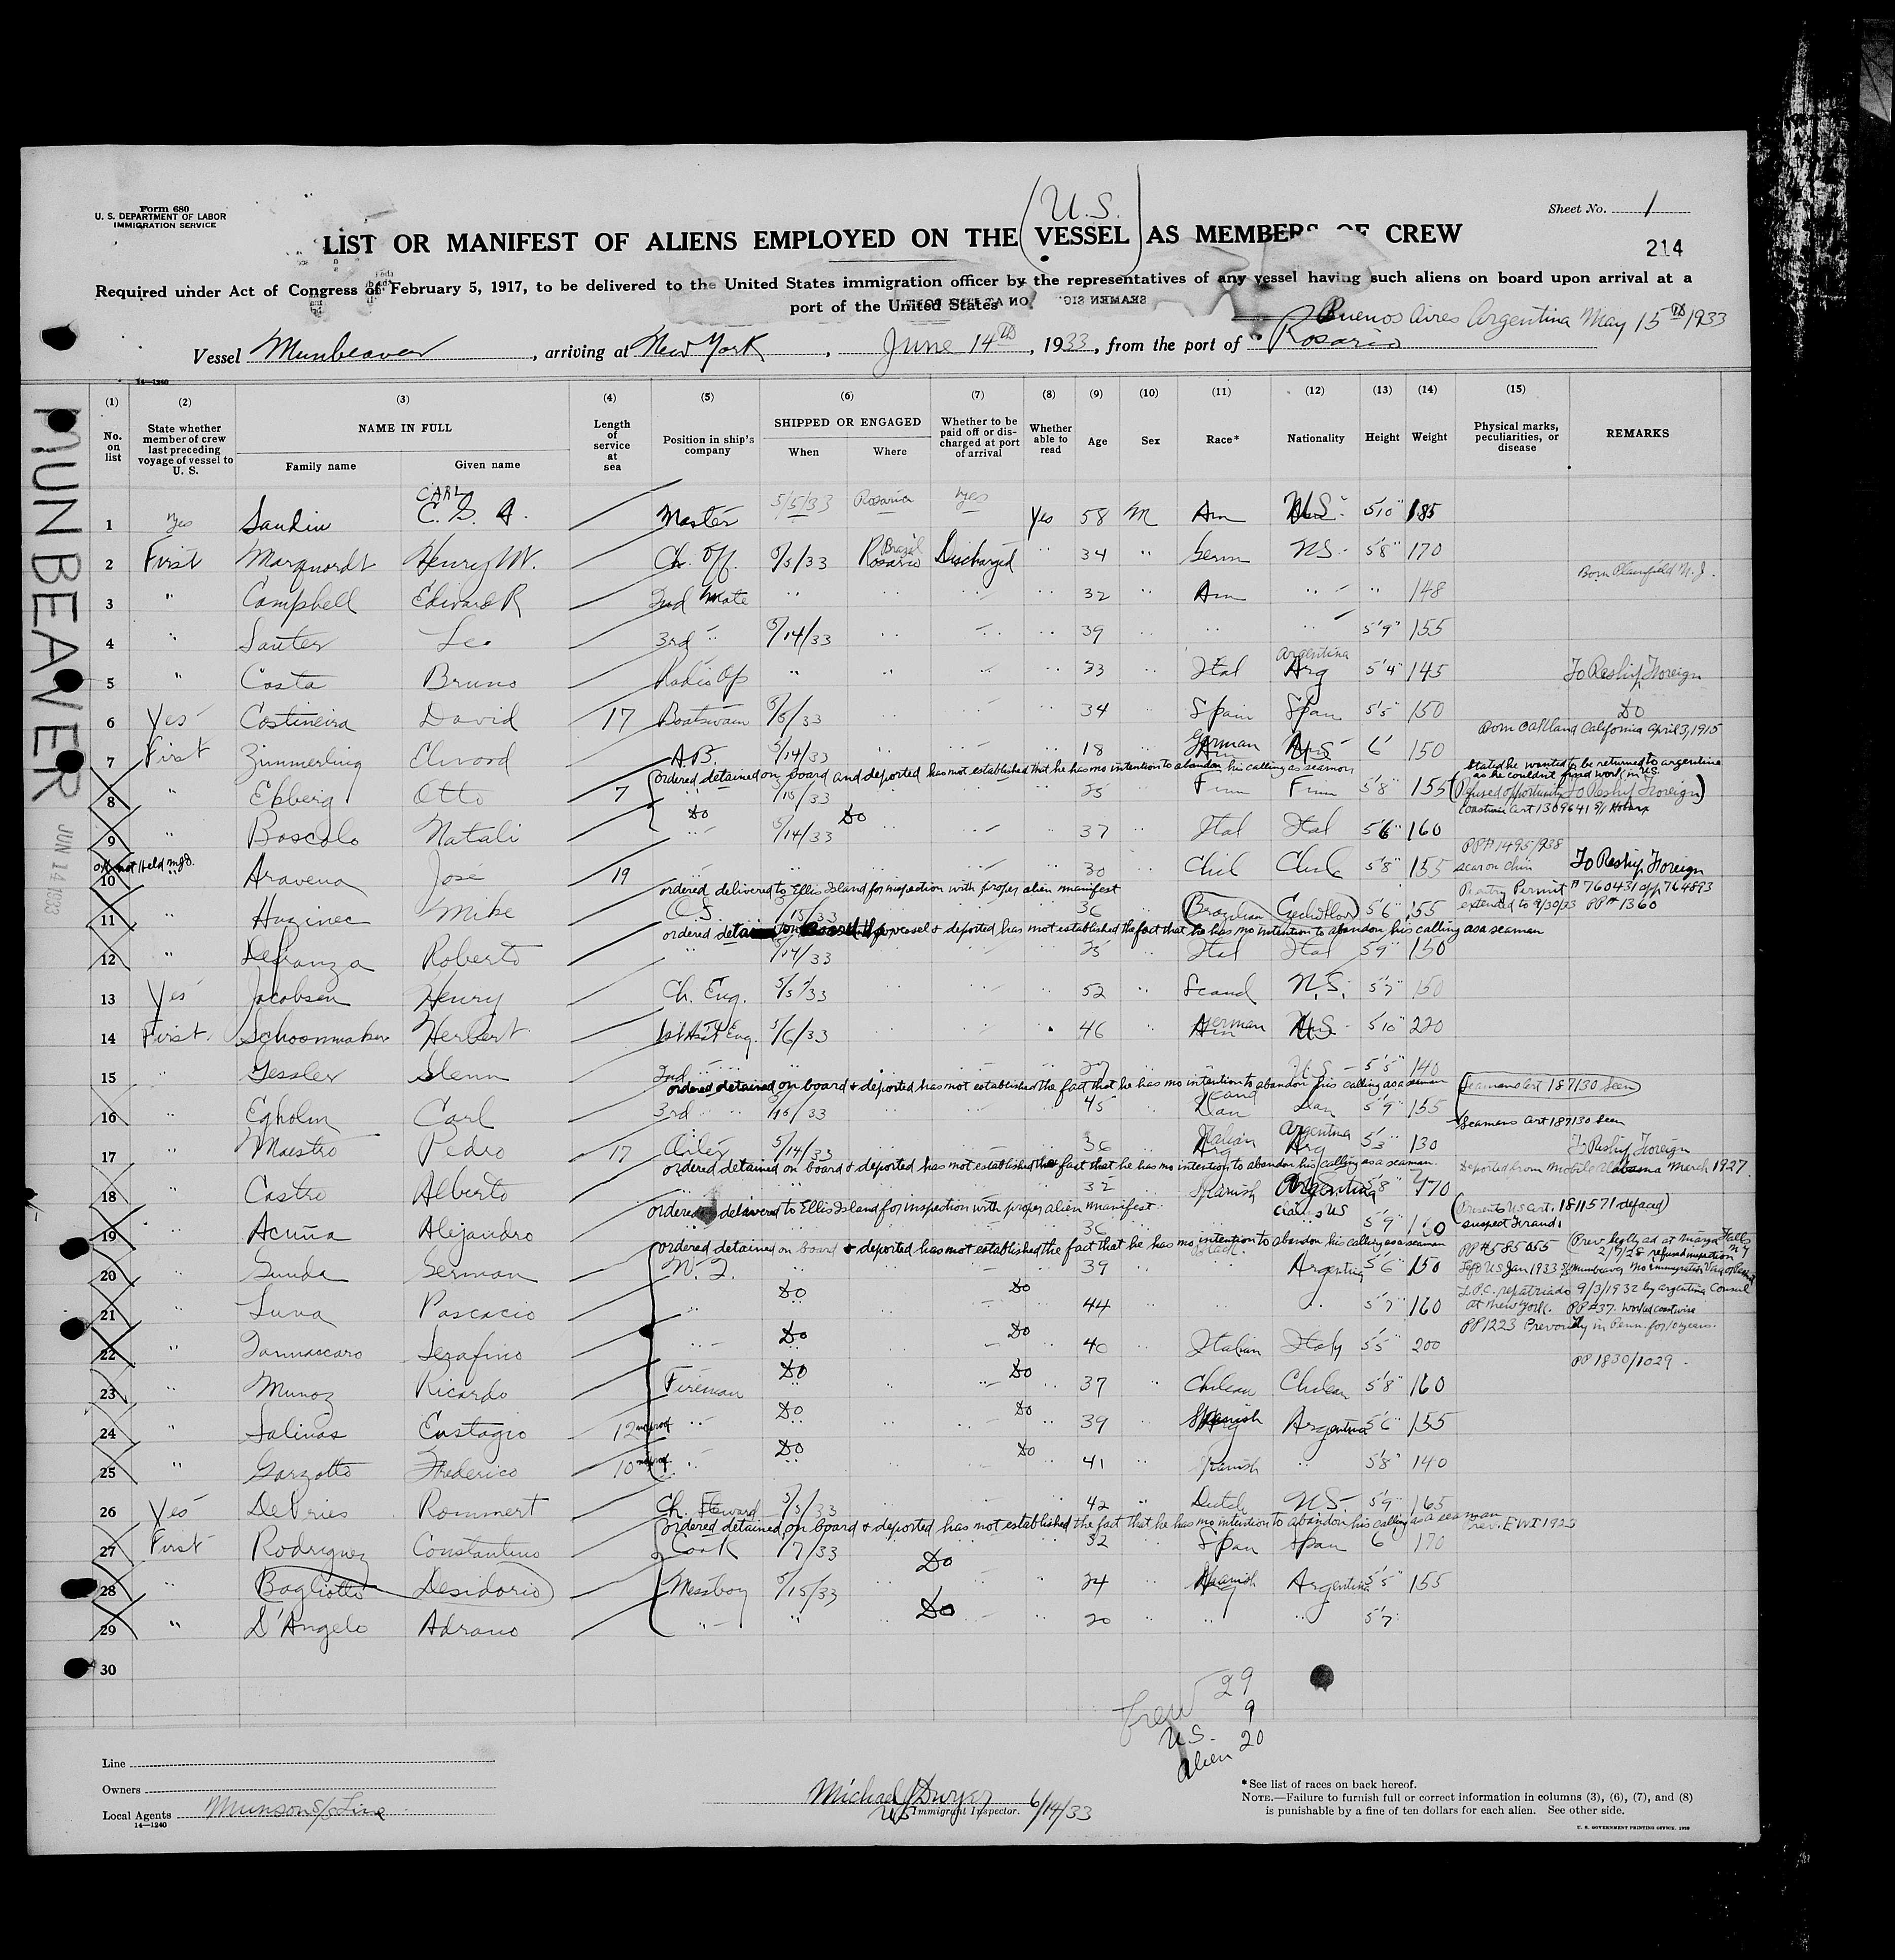 Form 680
U. S. DEPARTMENT OF LABOR
IMMIGRATION SERVICE
(U.S.)
Sheet No. 1
LIST OR MANIFEST OF ALIENS EMPLOYED ON THE VESSEL AS MEMBERS OF CREW
214
Required under Act of Congress of February 5, 1917, to be delivered to the United States immigration officer by the representatives of any vessel having such aliens on board upon arrival at a
port of the United States
Buenos Aires Argentina May 15th 1933
Vessel Munbeaver, arriving at New York, June 14th, 1933, from the port of Rosario
14—1240
MUNBEAVER
JUN 14 1933
(1) (2) (3) (4) (5) (6) (7) (8) (9) (10) (11) (12) (13) (14) (15)
No. on list
State whether member of crew last preceding voyage of vessel to U. S.
NAME IN FULL
Family name Given name
Length of service at sea
Position in ship's company
SHIPPED OR ENGAGED
When Where
Whether to be paid off or discharged at port of arrival
Whether able to read
Age Sex Race* Nationality Height Weight
Physical marks, peculiarities, or disease
REMARKS
CARL
1 Yes Sandin C. G. A. Master 5/5/33 Rosario Yes Yes 58 M Am U.S. 5'10" 185
Brazil
2 First Marquardt Henry W. Ch. Off. 5/5/33 Rosario Discharged " 34 " Germ U.S. 5'8" 170
Born Plainfield N.J.
3 " Campbell Edward R 2nd Mate " " " " 32 " Am " " 148
4 " Sauter Leo 3rd " 5/14/33 " " " 39 " " " 5'9" 155
Argentina
5 " Costa Bruno Radio Op " " " " 33 " Ital Arg 5'4" 145 To Reship Foreign
6 Yes Costineira David 17 Boatswain 5/5/33 " " " 34 " Spain Span 5'5" 150 Do
Born Oakland California April 3, 1915
7 First Zimmerling Elwood A.B. 5/14/33 " " " 18 " German U.S. 6' 150
ordered detained on board and deported has not established that he has no intention to abandon his calling as seaman
Stated he wanted to be returned to argentina
as he couldn't find work in U.S.
8 " Ekberg Otto 7 " 5/15/33 " " " 25 " Finn Finn 5'8" 155 (Refused opportunity To Reship Foreign)
Do Do
9 " Boscolo Natali " 5/14/33 " " " 37 " Ital Ital 5'6" 160
PP# 1495/938
10 " Aravena José 19 " " " " " 30 " Chil Chile 5'8" 155 scar on chin To Reship Foreign
ordered delivered to Ellis Island for inspection with proper alien manifest
extended to 9/30/33 PP# 1360
11 " Huzinec Mike O.S. 5/15/33 " " " 36 " Brazilian Czechoslov 5'6" 155
vessel & deported has not established the fact that he has no intention to abandon his calling as a seaman
12 " Defranza Roberto " 5/14/33 " " " 25 " Ital Ital 5'9" 150
13 Yes Jacobsen Henry Ch. Eng. 5/5/33 " " " 52 " Scand U.S. 5'7" 150
14 First Schoonmaker Herbert 1st Ass't Eng. 5/6/33 " " " 46 " German U.S. 5'10" 220
15 " Gessler Glenn 2nd " " " " " 27 " " U.S. 5'5" 140
ordered detained on board & deported has not established the fact that he has no intention to abandon his calling as a seaman
Seamans Cert 187130 Seen
16 " Egholm Carl 3rd " 5/15/33 " " " 45 " Scand Dan 5'9" 155
Seamens Cert 187130 Seen
Argentina
17 " Maestro Pedro 17 Oiler 5/14/33 " " " 36 " Italian Arg 5'3" 130 To Reship Foreign
ordered detained on board & deported has not established the fact that he has no intention to abandon his calling as a seaman.
Deported from Mobile Alabama March 1927
18 " Castro Alberto " " " " " 32 " Spanish Argentina 5'8" 170
ordered delivered to Ellis Island for inspection with proper alien manifest
claims US
(Presents US cert. 1811571 defaced)
suspect fraud
19 " Acuña Alejandro " " " " " 36 " " 5'9"
ordered detained on board & deported has not established the fact that he has no intention to abandon his calling as a seaman
PP# 585055
20 " Gunda German W.T. " " " " 39 " Argentina 5'6" 150
Do Do
L.P.C. repatriado 9/3/1932 by argentina Consul
at New York. PP#37. worked coastwise
21 " Luna Pascacio " " " " " 44 " " " 5'7" 160
PP1223 Previously in Penn. for 10 years.
Do Do
22 " Iannaccaro Serafino " " " " " 40 " Italian Italy 5'5" 200
PP 1830/1029.
Do Do
23 " Munoz Ricardo Fireman " " " " 37 " Chilean Chilean 5'8" 160
Do Do
24 " Salinas Eustagio 12 no proof " " " " " 39 " Spanish Argentina 5'6" 155
Do Do
25 " Garzotto Frederico 10 no proof " " " " " 41 " Spanish " 5'8" 140
26 Yes DeVries Rommert Ch. Steward 5/5/33 " " " 42 " Dutch U.S. 5'9" 165
ordered detained on board & deported has not established the fact that he has no intention to abandon his calling as a seaman
27 First Rodriguez Constantino Cook 5/7/33 " " " 52 " Span Span 6' 170
Do
28 " Bagliotto Desidorio Messboy 5/15/33 " " " 24 " Spanish Argentina 5'5" 155
Do
29 " D'Angelo Adrano " " " " " 20 " " " 5'7"
30
Crew 29
U.S. 9
alien 20
Line
Owners
Local Agents Munson S/S Line
14—1240
Michael J Dwyer 6/14/33
US Immigrant Inspector.
*See list of races on back hereof.
NOTE.—Failure to furnish full or correct information in columns (3), (6), (7), and (8)
is punishable by a fine of ten dollars for each alien. See other side.
U. S. GOVERNMENT PRINTING OFFICE.